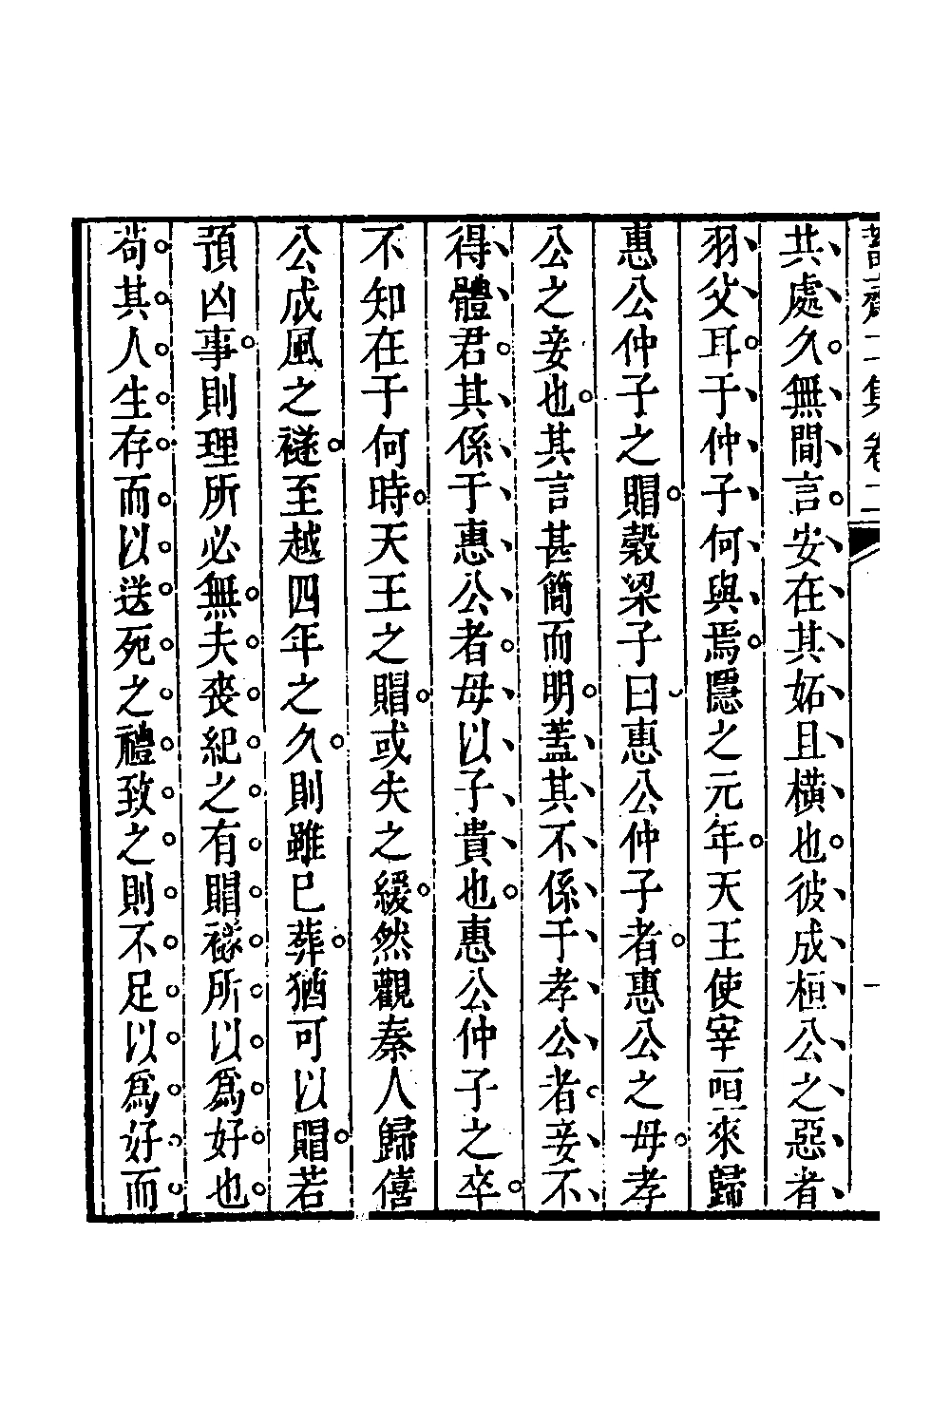 共處久無間言安在其妬且橫也彼成桓公之惡者
羽父耳于仲子何與焉隱之元年天王使宰咺來歸
惠公仲子之賵穀梁子曰惠公仲子者惠公之母孝
公之妾也其言甚簡而明蓋其不係于孝公者妾不
得體君其係于惠公者母以子貴也惠公仲子之卒
不知在于何時天王之賵或失之緩然觀秦人歸僖
公成風之襚至越四年之久則雖已葬猶可以賵若
預凶事則理所必無夫喪紀之有賵襚所以為好也
苟其人生存而以送死之禮致之則不足以為好而